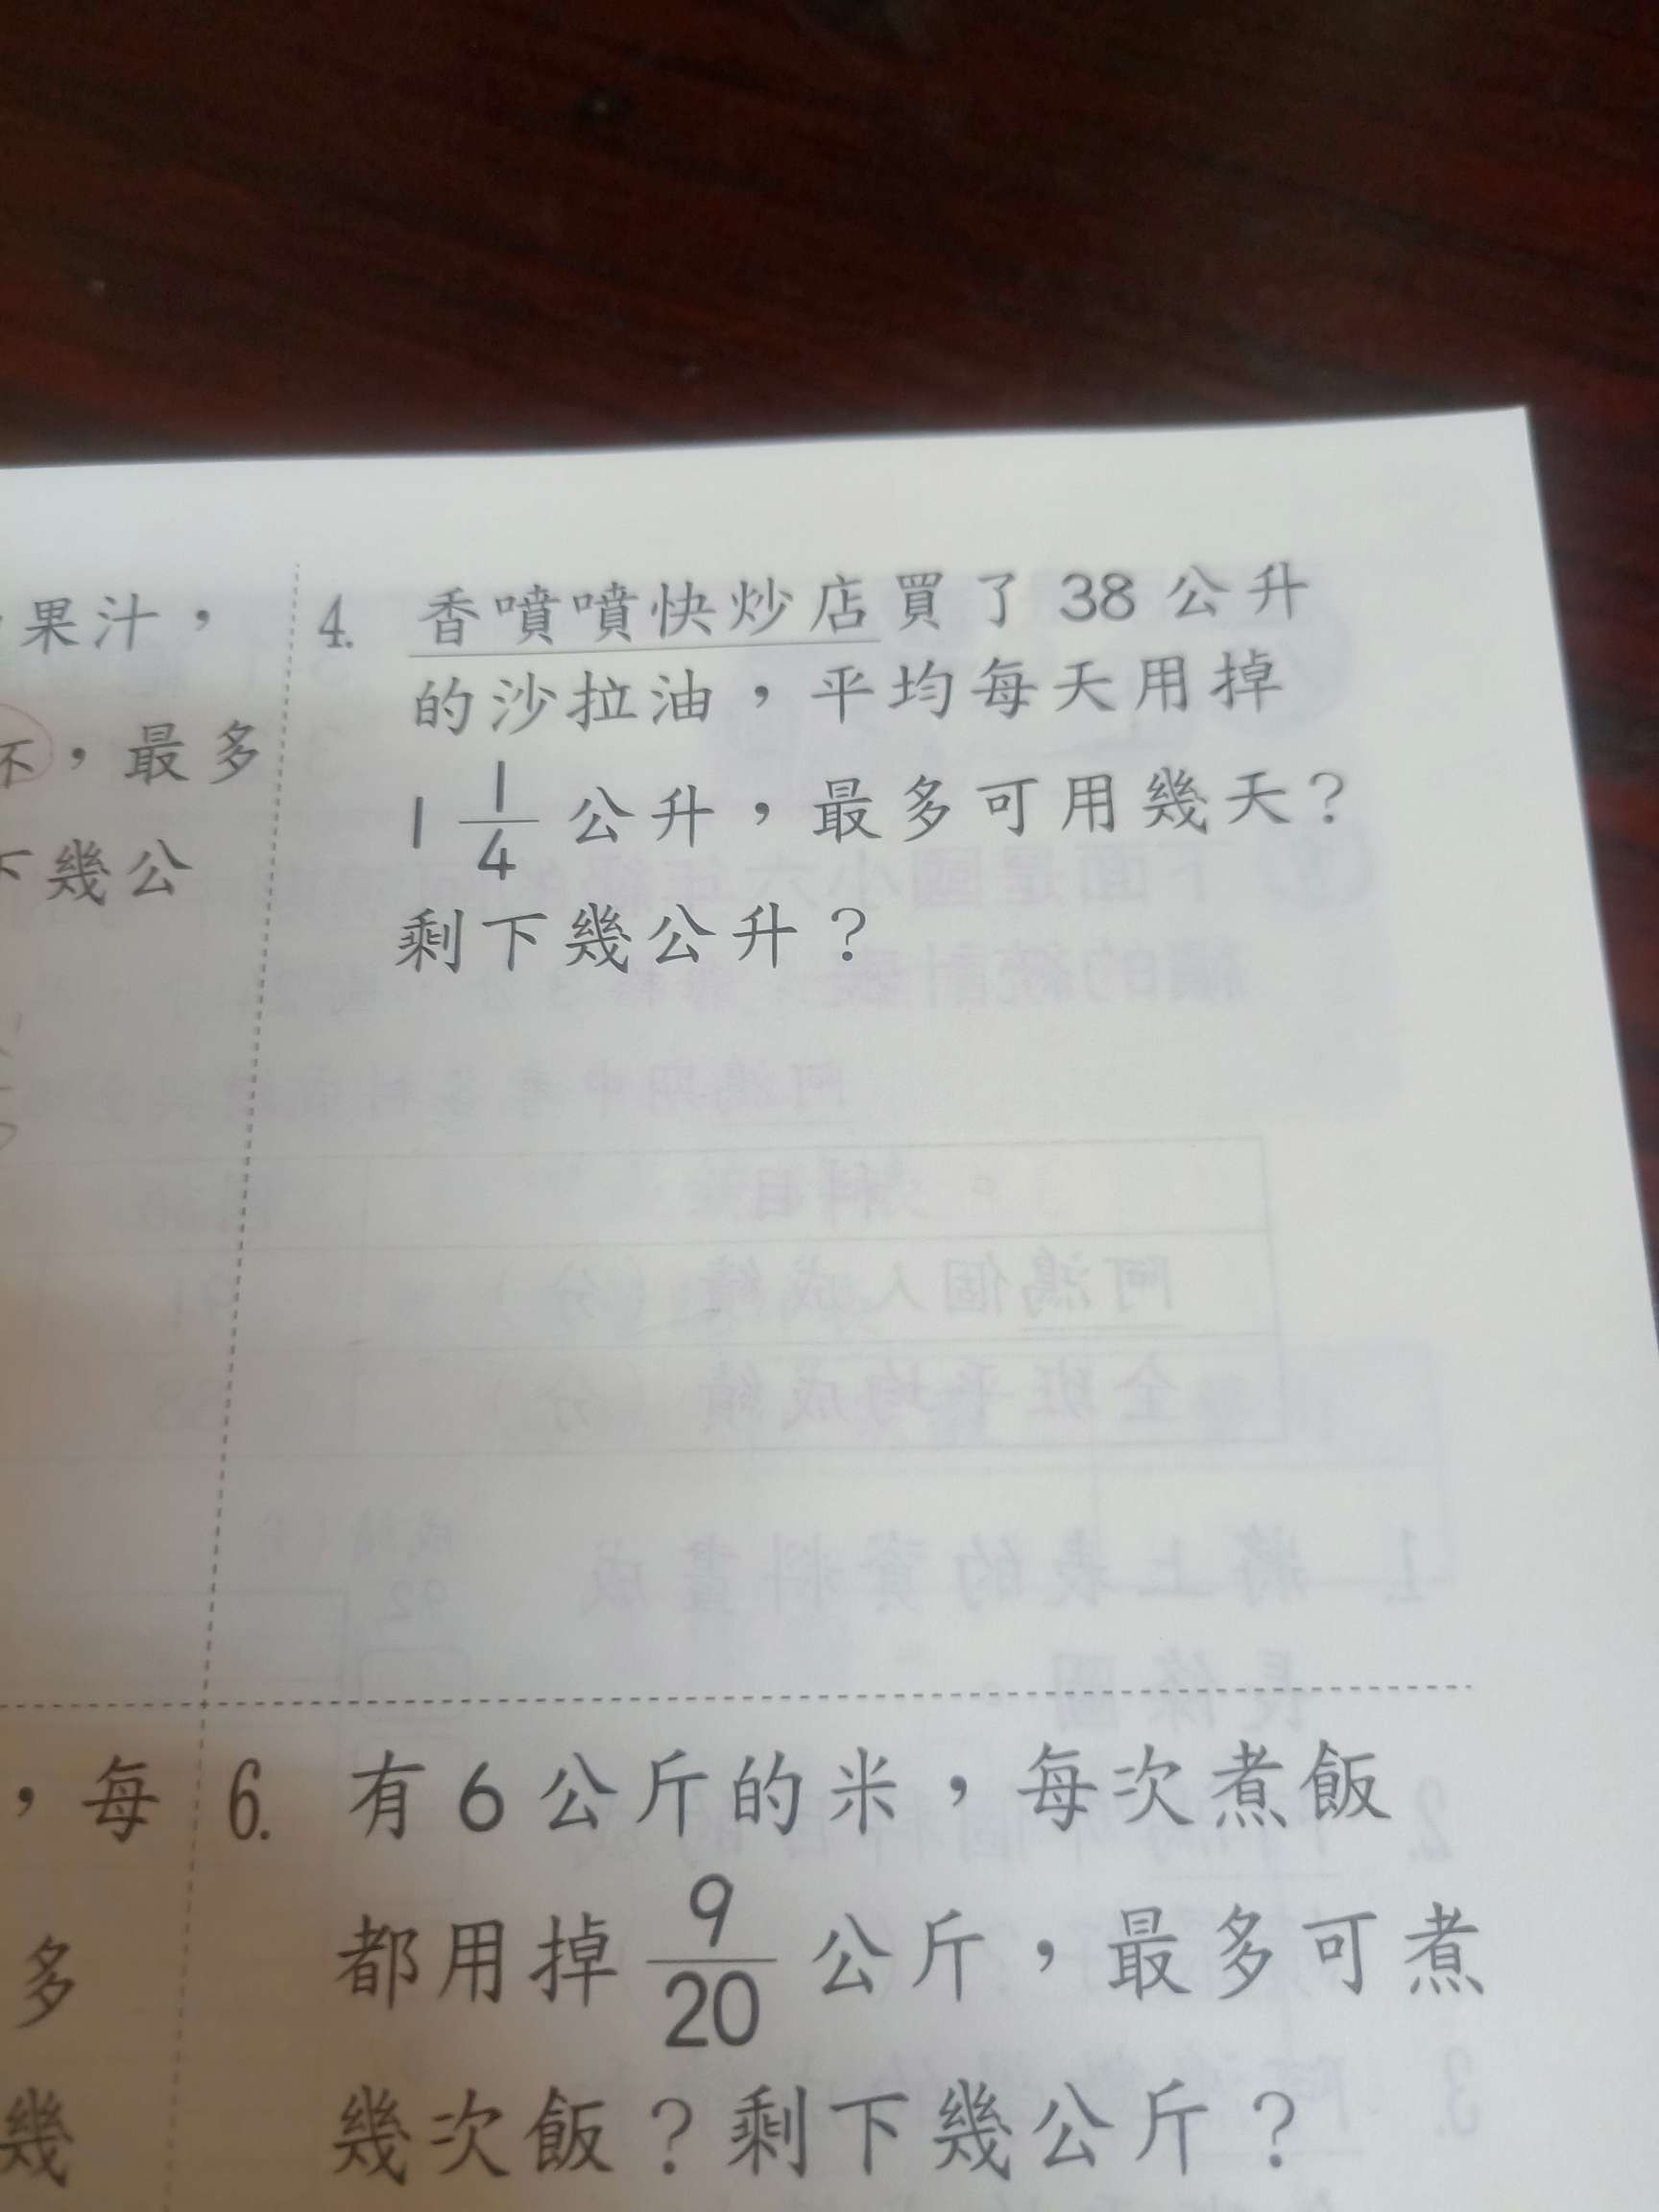 果汁，
，最多
幾公
4. 香噴噴快炒店買了38公升
的沙拉油，平均每天用掉
1 1/4 公升，最多可用幾天？
剩下幾公升？
，每
多
幾
6. 有6公斤的米，每次煮飯
都用掉 9/20 公斤，最多可煮
幾次飯？剩下幾公斤？